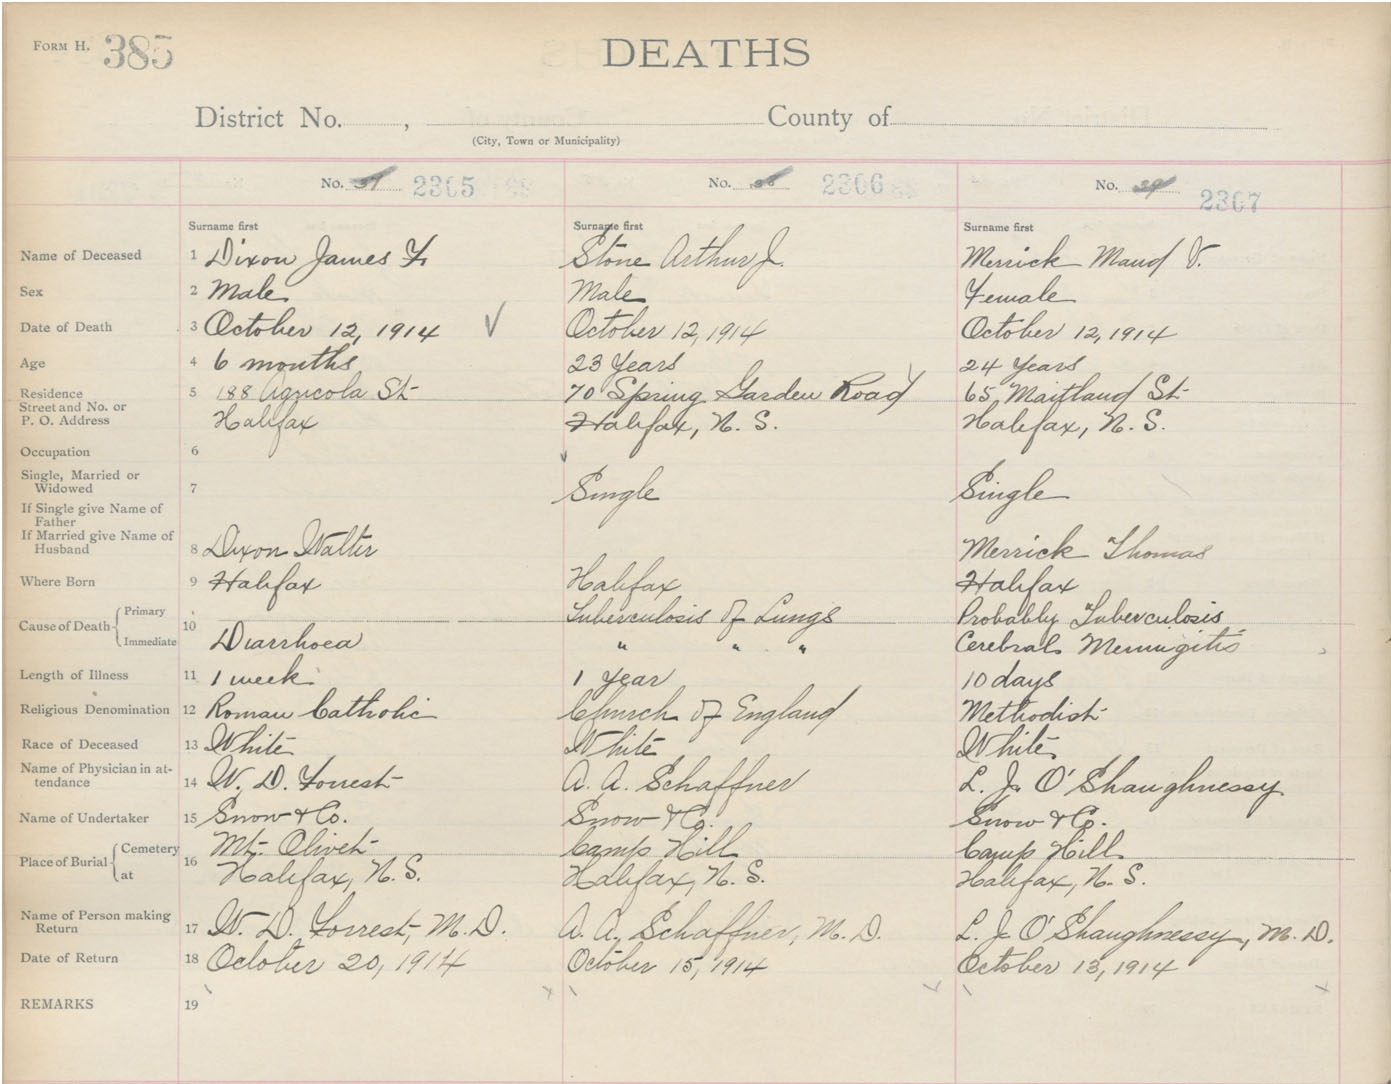 FORM H. 385
DEATHS
District No. , County of
(City, Town or Municipality)
No. 37 2305
No. 38 2306
No. 39 2307
Surname first
Surname first
Surname first
Name of Deceased 1 Dixon James F. Stone Arthur J. Merrick Maud V.
Sex 2 Male Male Female
Date of Death 3 October 12, 1914 October 12, 1914 October 12, 1914
Age 4 6 months 23 Years 24 Years
Residence 5 188 Agricola St 70 Spring Garden Road 65 Maitland St
Street and No. or
P. O. Address Halifax Halifax, N. S. Halifax, N. S.
Occupation 6
Single, Married or
Widowed 7 Single Single
If Single give Name of
Father
If Married give Name of
Husband 8 Dixon Walter Merrick Thomas
Where Born 9 Halifax Halifax Halifax
Cause of Death Primary 10 Tuberculosis of Lungs Probably Tuberculosis
Immediate Diarrhoea " " " Cerebral Meningitis
Length of Illness 11 1 week 1 Year 10 days
Religious Denomination 12 Roman Catholic Church of England Methodist
Race of Deceased 13 White White White
Name of Physician in at-
tendance 14 W. D. Forrest A. A. Schaffner L. J. O'Shaughnessy
Name of Undertaker 15 Snow & Co. Snow & Co. Snow & Co.
Place of Burial Cemetery 16 Mt. Olivet Camp Hill Camp Hill
at Halifax, N. S. Halifax, N. S. Halifax, N. S.
Name of Person making
Return 17 W. D. Forrest, M. D. A. A. Schaffner, M. D. L. J. O'Shaughnessy, M. D.
Date of Return 18 October 20, 1914 October 15, 1914 October 13, 1914
REMARKS 19